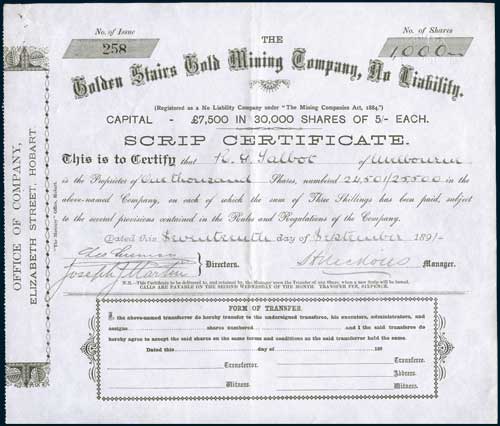 No. of Issue
258
THE
No. of Shares
1000
Golden Stairs Gold Mining Company, No Liability.
(Registered as a No Liability Company under "The Mining Companies Act, 1884.")
CAPITAL - £7,500 IN 30,000 SHARES OF 5/- EACH.
SCRIP CERTIFICATE.
This is to Certify that R. G. Talbot of Melbourne
is the Proprietor of One thousand Shares, numbered 24,501/25,500 in the
above-named Company, on each of which the sum of Three Shillings has been paid, subject
to the several provisions contained in the Rules and Regulations of the Company.
Dated this Seventeenth day of September 1891
Joseph J. Martin
Directors.
Manager.
N.B.—This Certificate to be delivered to, and retained by, the Manager upon the Transfer of any Share, when a new Scrip will be issued.
CALLS ARE PAYABLE ON THE SECOND WEDNESDAY OF THE MONTH TRANSFER FEE, SIXPENCE.
FORM OF TRANSFER.
I the above-named transferror do hereby transfer to the undersigned transferee, his executors, administrators, and
assigns shares numbered and I the said transferee do
hereby agree to accept the said shares on the same terms and conditions as the said transferror held the same.
Dated this day of 189
Transferree.
Transferror.
Address.
Witness.
Witness.
OFFICE OF COMPANY,
ELIZABETH STREET, HOBART
"The Mercury" Office, Hobart.